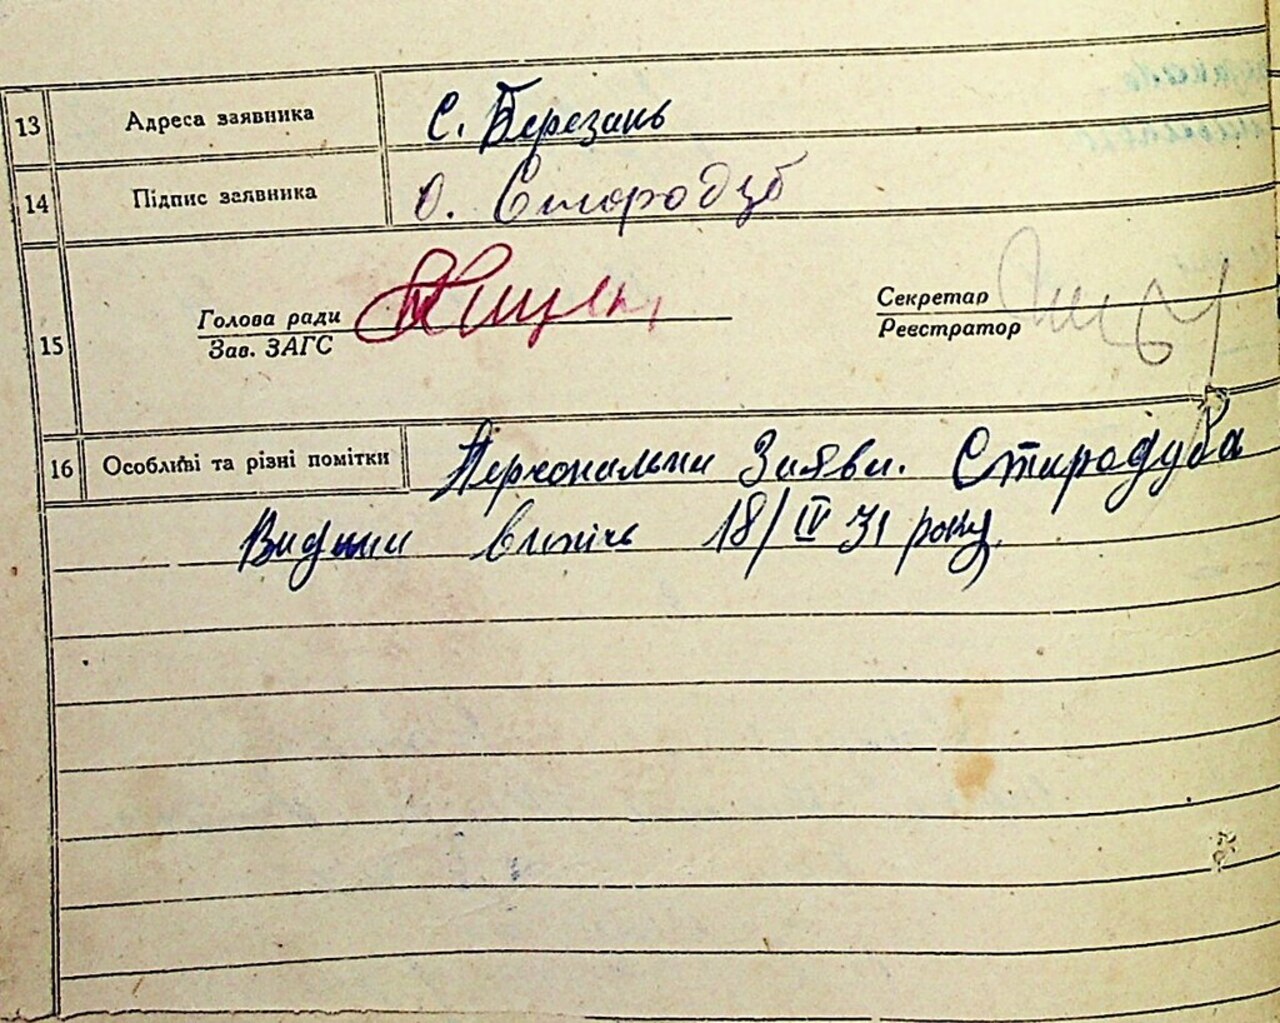 13 Адреса заявника С. Березань
14 Підпис заявника О. Стародуб
15 Голова ради Секретар
Зав. ЗАГС Реєстратор
16 Особливі та різні помітки Персональна Заява. Стародуба
Видали витяг 18/IV 31 року